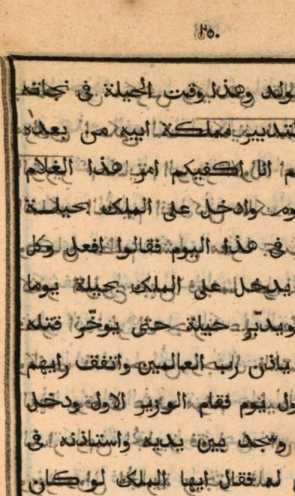 ٢٥٠
وهذا وقت الحيلة فى نجاته
لتدبير مملكة ابيه من بعده
انا اكفيكم امر هذا الغلام
وادخل على الملك بحيلة
فى هذا اليوم فقالوا افعل وكل
يدخل على الملك بحيلة يوما
ويدبّر حيلة حتى يوخّر قتله
باذن رب العالمين واتفق رايهم
يوم فقام الوزير الاول ودخل
وسجد بين يديه واستاذنه فى
له فقال ايها الملك لو كان